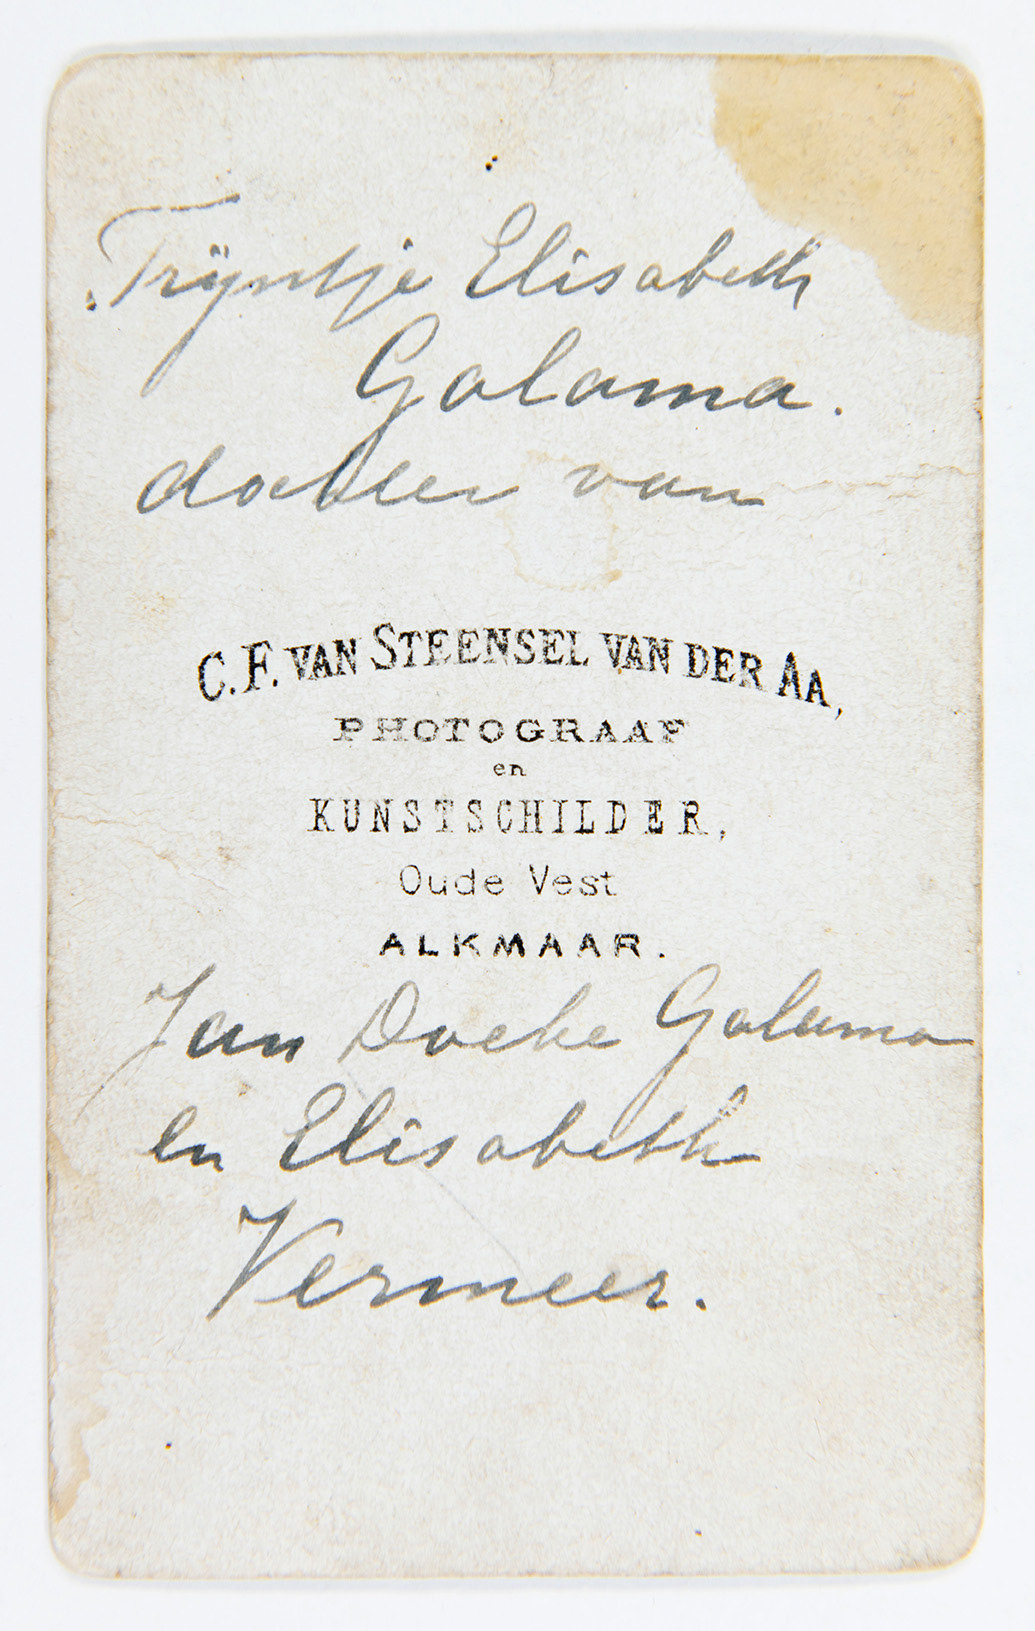 Trijntje Elisabeth
Galama.
dochter van
C. F. VAN STEENSEL VAN DER AA,
PHOTOGRAAF
en
KUNSTSCHILDER,
Oude Vest
ALKMAAR.
Jan Doeke Galama
en Elisabeth
Vermeer.